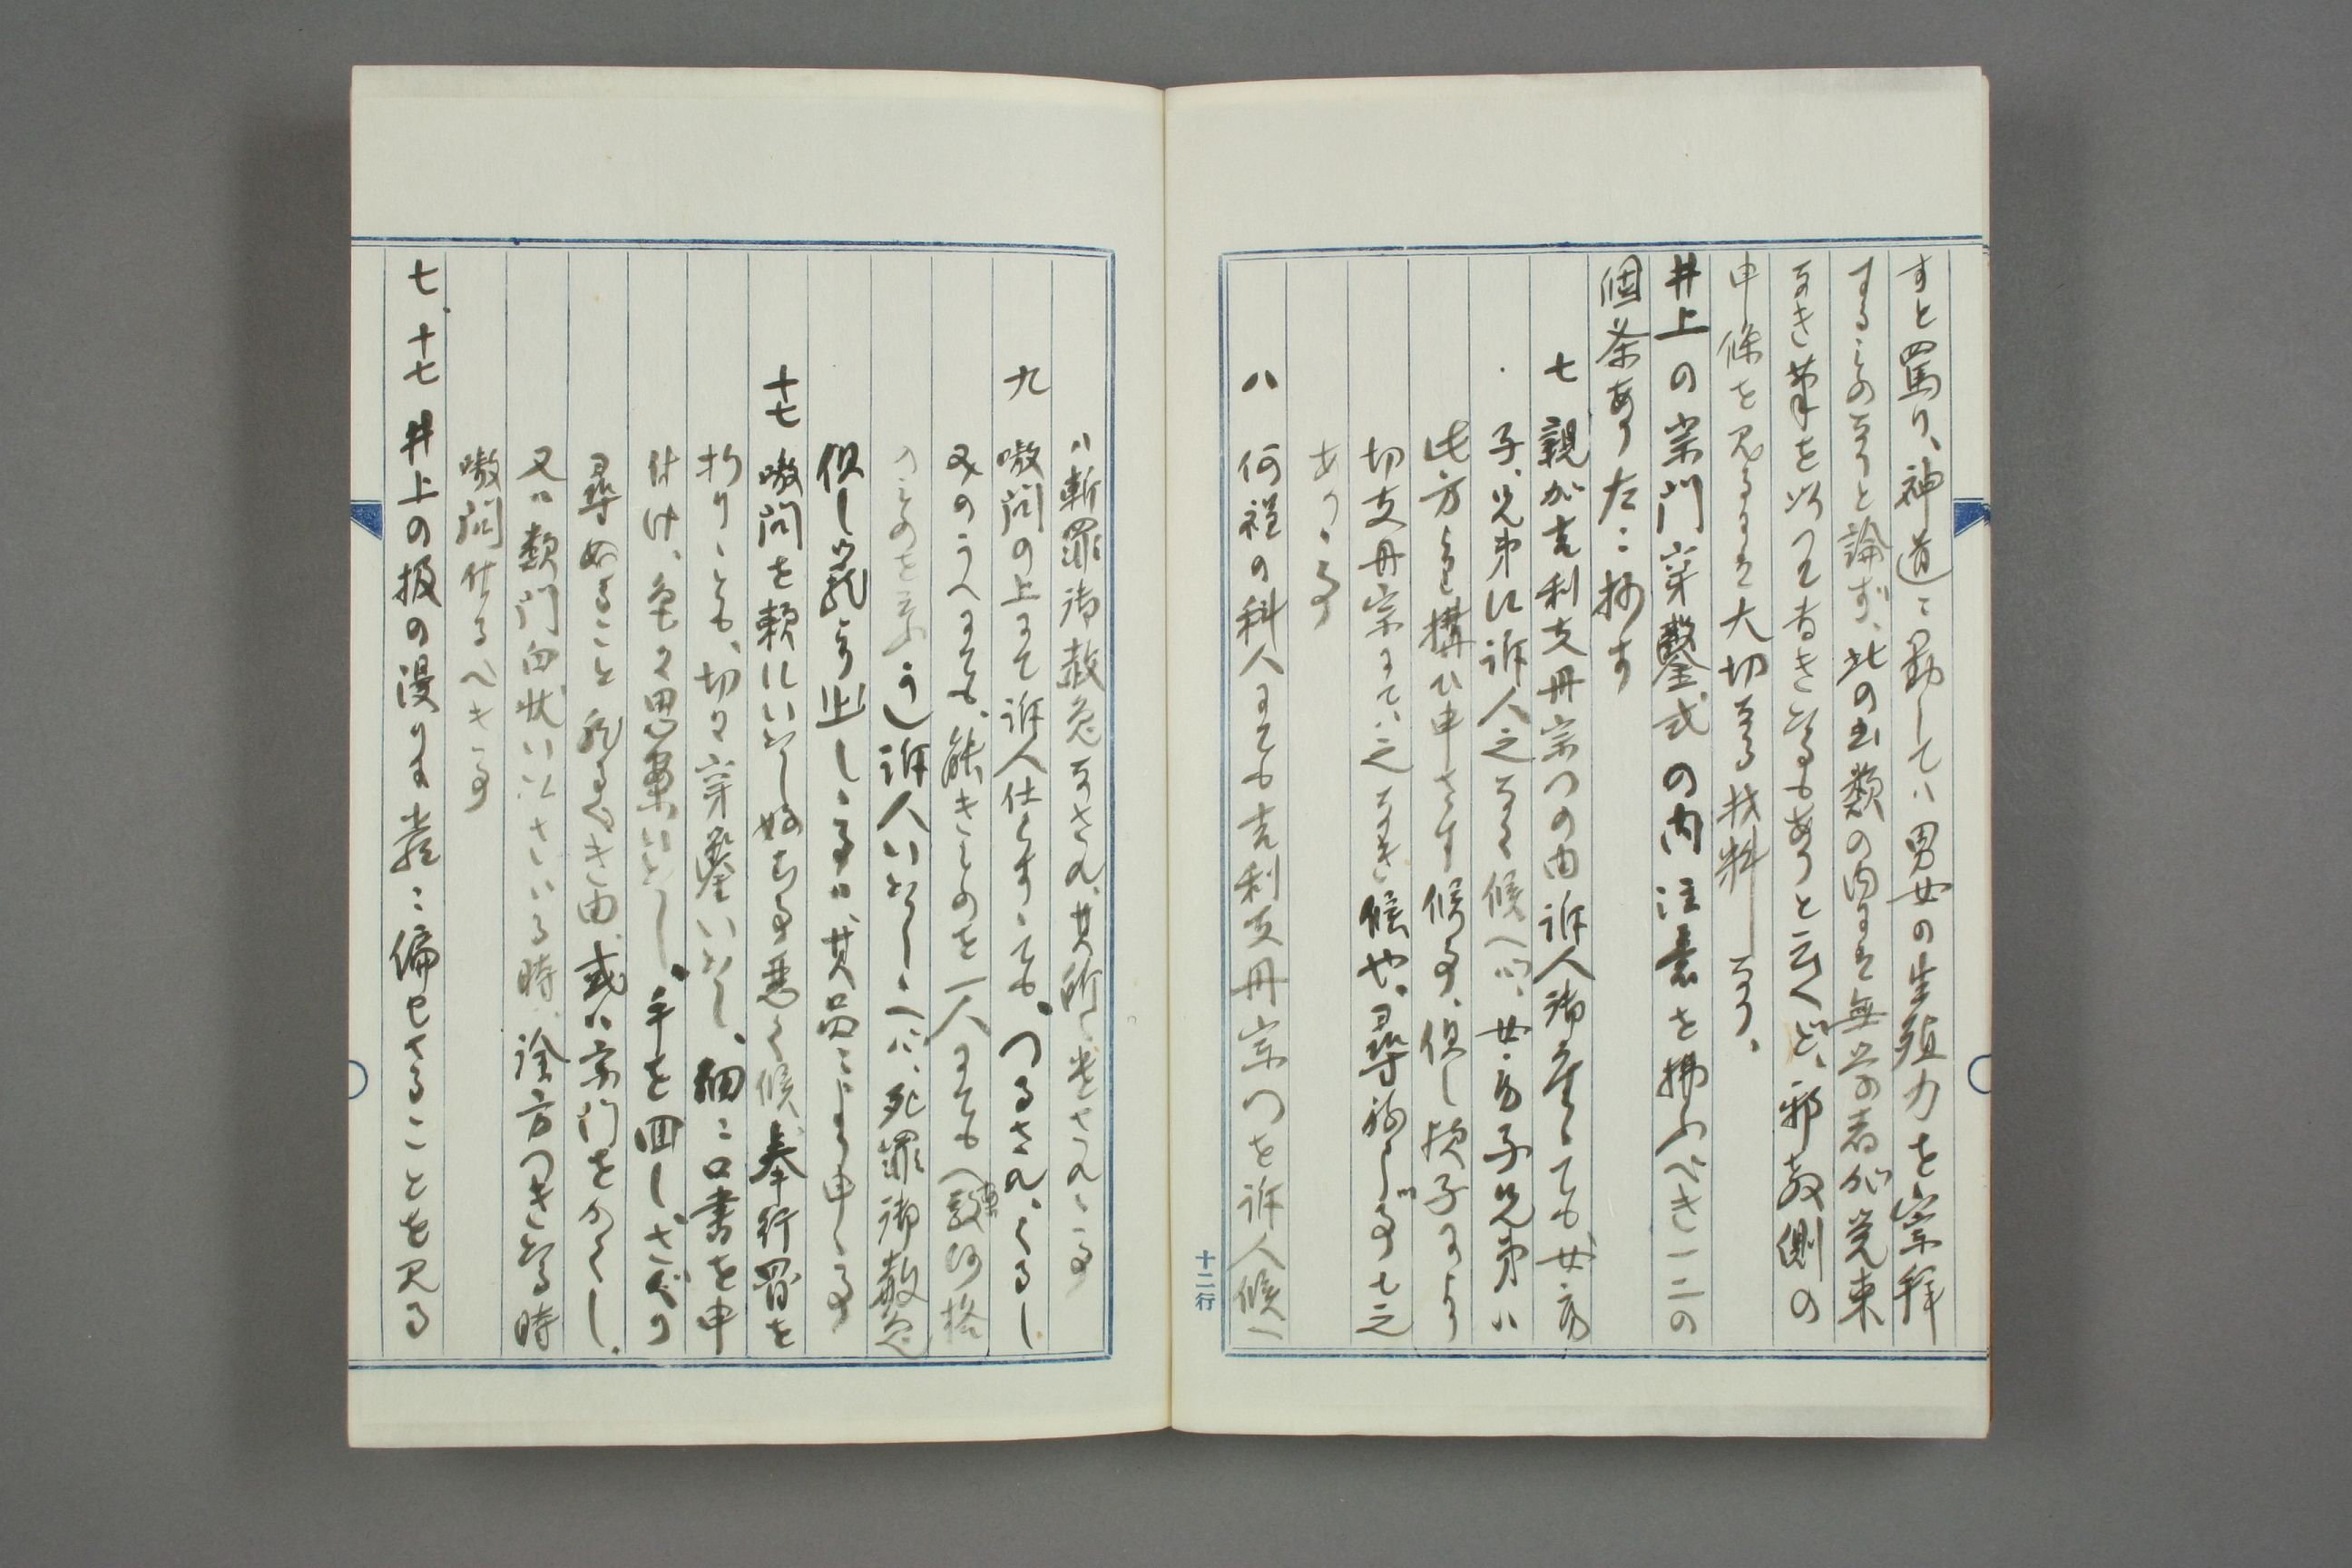 すと罵り、神道に対しては男女の生殖力を宗拝
するものなりと論ず、此の書類の内には無学の者が覚束
なき筆を以つて書きたるもありと云へど、邪教側の
申條を見るには大切なる材料なり、
井上の宗門穿鑿式の内注意を拂ふべき一二の
個条あり左に抄す
七 親が吉利支丹宗門の由訴人御座候ても女房
子、兄弟は訴人之なく候へば、女房子兄弟は
此方より構ひ申さず候事、但し様子により
切支丹宗にて之なき候や、尋ね候事も之
あり候事
八 何程の科人にても吉利支丹宗門を訴人候へ
十二行
ば斬罪御赦免なされ、其所に差置れ候事
九 嗷問の上にて訴人仕らず候ても、つるされ、くるし
みのうへにても、能きものを一人にても
訴人いたし候へば、死罪御赦免
但し
十七 嗷問を頼にいたし候事悪く候、奉行骨を
折り候とも、切々穿鑿いたし、細に口書を申
付け、色々思案いたし、手を回し、さぐり
尋ぬること
又は類門白状いたさざる時、途方つきたる時
嗷問仕るべき事
七、十七 井上の扱の漫りに虐に偏せざることを見る